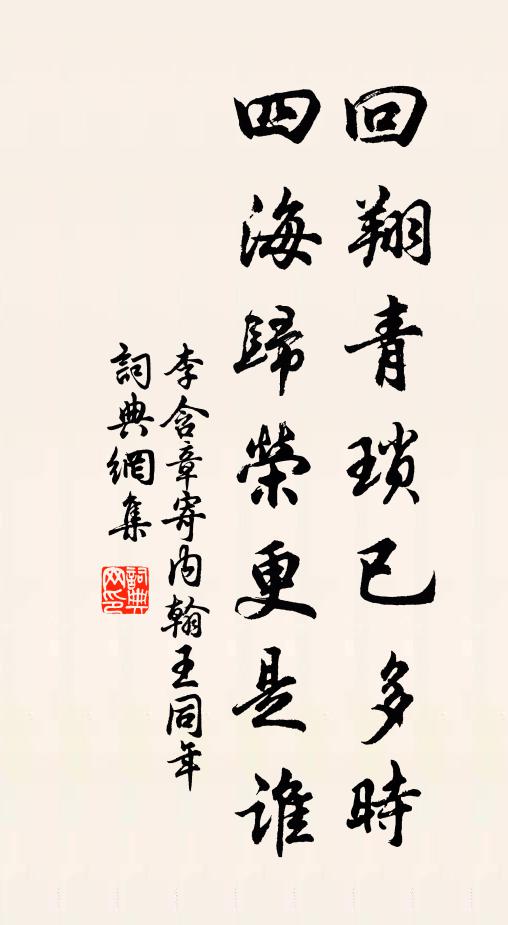 回翔青瑣已多時
四海歸榮更是誰
李含章寄内翰王同年
詞典網集
詞典
网印